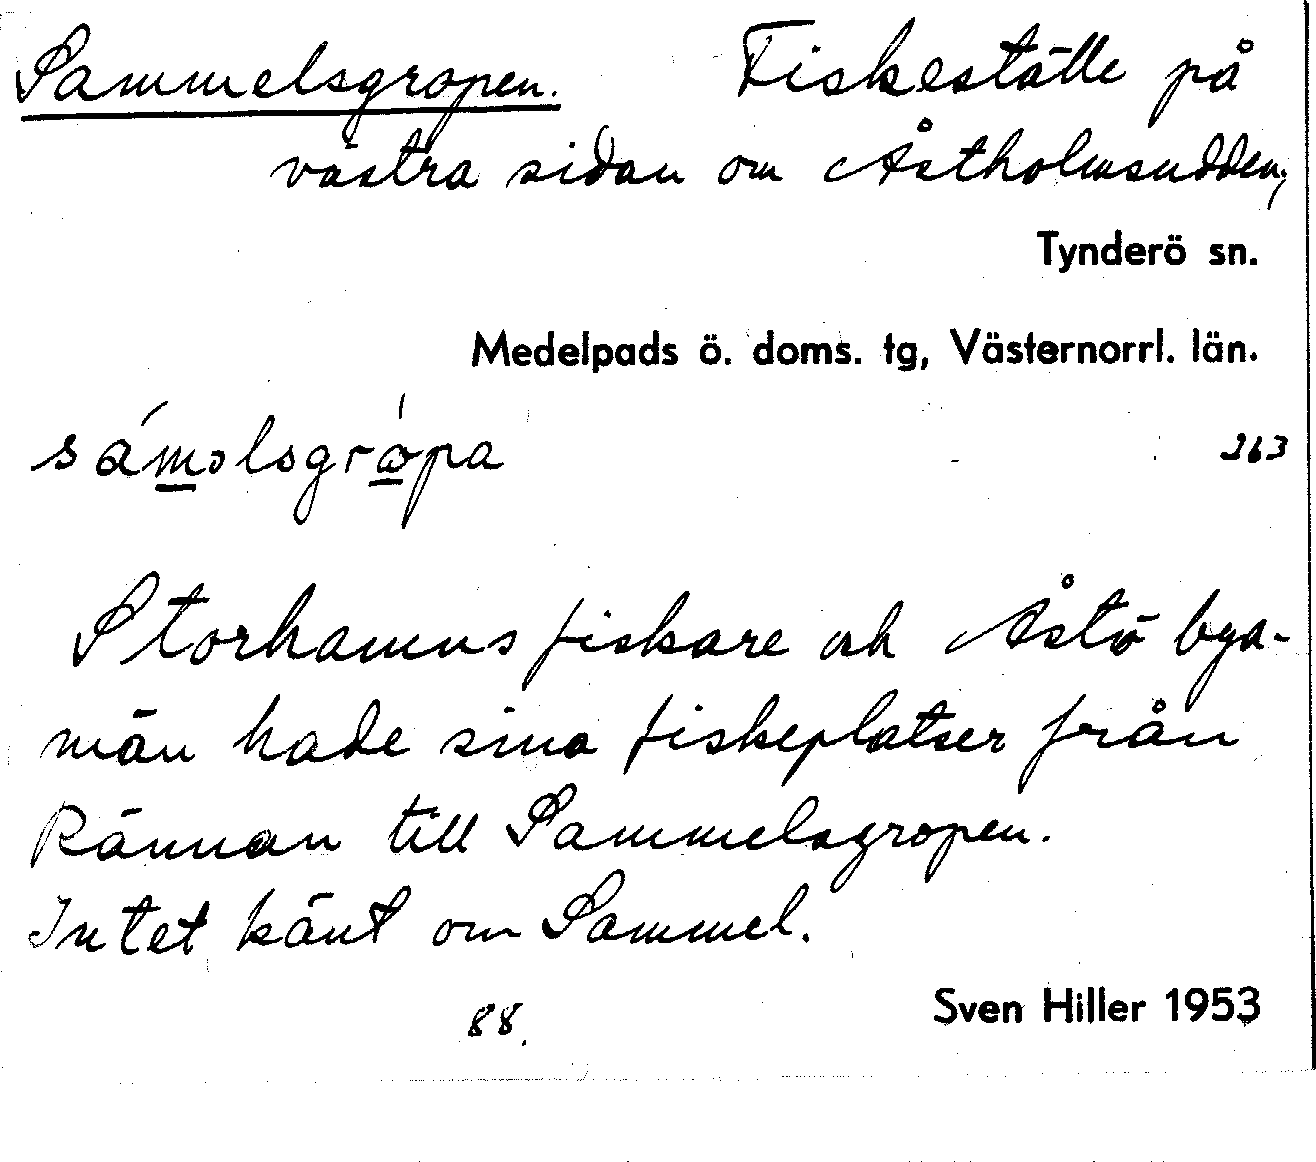 Sammelsgropen. Fiskeställe på
västra sidan om Åstholmsudden,
Tynderö sn.
Medelpads ö. doms. tg, Västernorrl. län.
263
Storhamns fiskare och Åstö bya-
män hade sina fiskeplatser från
Rännan till Sammelsgropen.
Intet känt om Sammel.
Sven Hiller 1953
88.